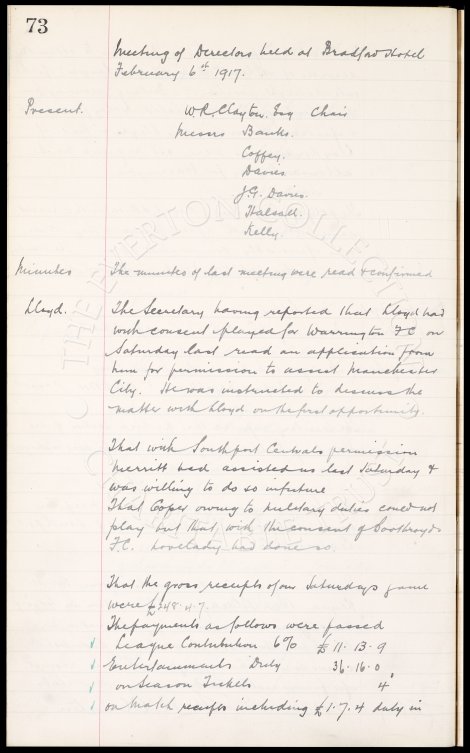 73
Meeting of Directors held at Bradford Hotel
February 6th 1917.
Present. W.R. Clayton. Esq Chair
Messrs Banks.
Coffey.
Davies
J.G. Davies.
Halsall.
Kelly.
Minutes The minutes of last meeting were read & confirmed
Lloyd. The Secretary having reported that Lloyd had
with consent played for Warrington FC on
Saturday last read an application from
him for permission to assist Manchester
City. He was instructed to discuss the
matter with Lloyd on the first opportunity.
That with Southport Centrals permission
Merritt had assisted us last Saturday &
was willing to do so in future
That Cooper owing to military duties could not
play but that with the consent of
F.C. had done so.
That the gross receipts of our Saturdays game
were £248.4.7.
The payments as follows were passed
League Contribution 6% £11.13.9
Entertainments Duty 36.16.0
on Season Tickets 4
on Match receipts including £1.7.4 duty in
THE EVERTON COLLECTION